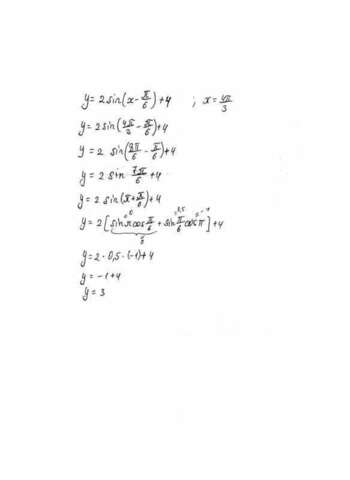 y = 2 sin(x - π/6) + 4 ; x = 4π/3
y = 2 sin(4π/3 - π/6) + 4
y = 2 sin(8π/6 - π/6) + 4
y = 2 sin 7π/6 + 4
y = 2 sin(π + π/6) + 4
0 0,5 -1
y = 2 [sin π cos π/6 + sin π/6 cos π] + 4
0
y = 2 · 0,5 · (-1) + 4
y = -1 + 4
y = 3